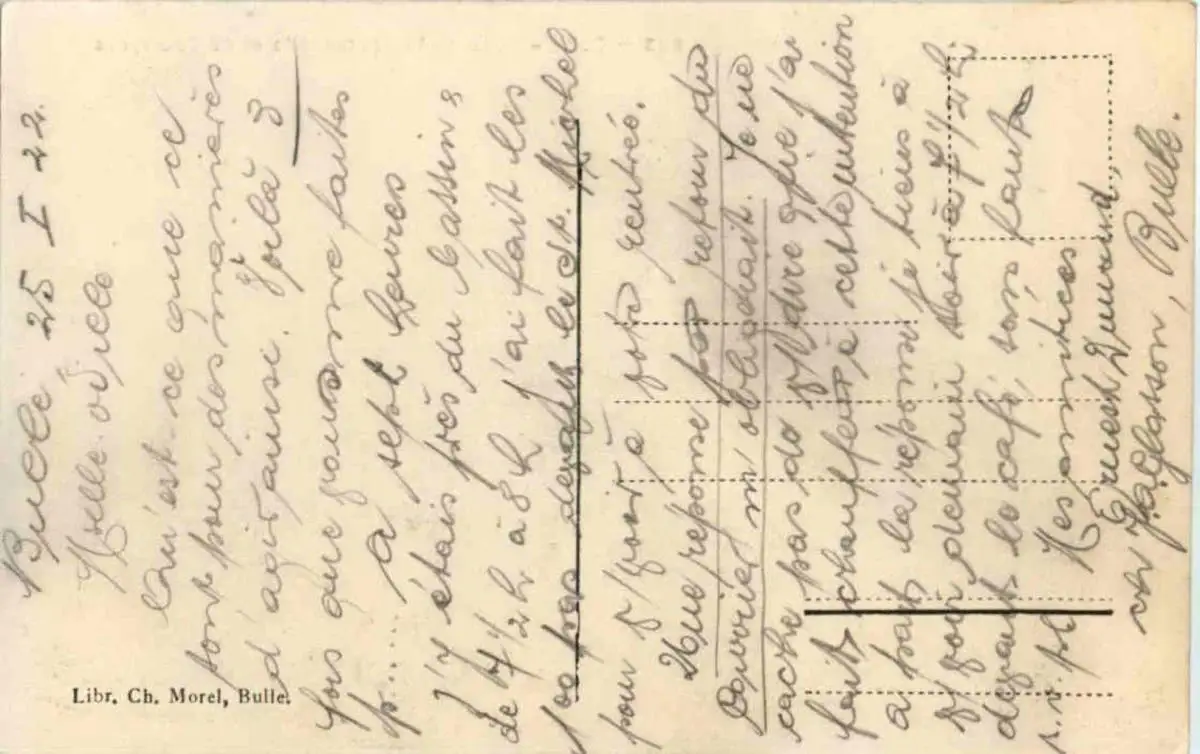 Bulle 25 I 22.
Melle Odile
Qu'est-ce que ce
sont pour des manières
d'agir ainsi. Voilà 3
fois que vous me faites
p..... A sept heures
j'y étais près du Cassin &
de 7 1/2 h. à 8 h. j'ai fait les
100 pas devant le St. Michel
pour v/ voir à votre rentrée.
Une réponse par retour du
courrier m'obligerait. Je ne
cache pas de v/ dire que j'ai
fait chauffer à cette intention
à part la réponse je tiens à
v/ voir demain soir à 7 1/2 h
devant le café, sans faute
s.v.pl. Mes amitiés
Ernest Durund,
Bulle.
Libr. Ch. Morel, Bulle.